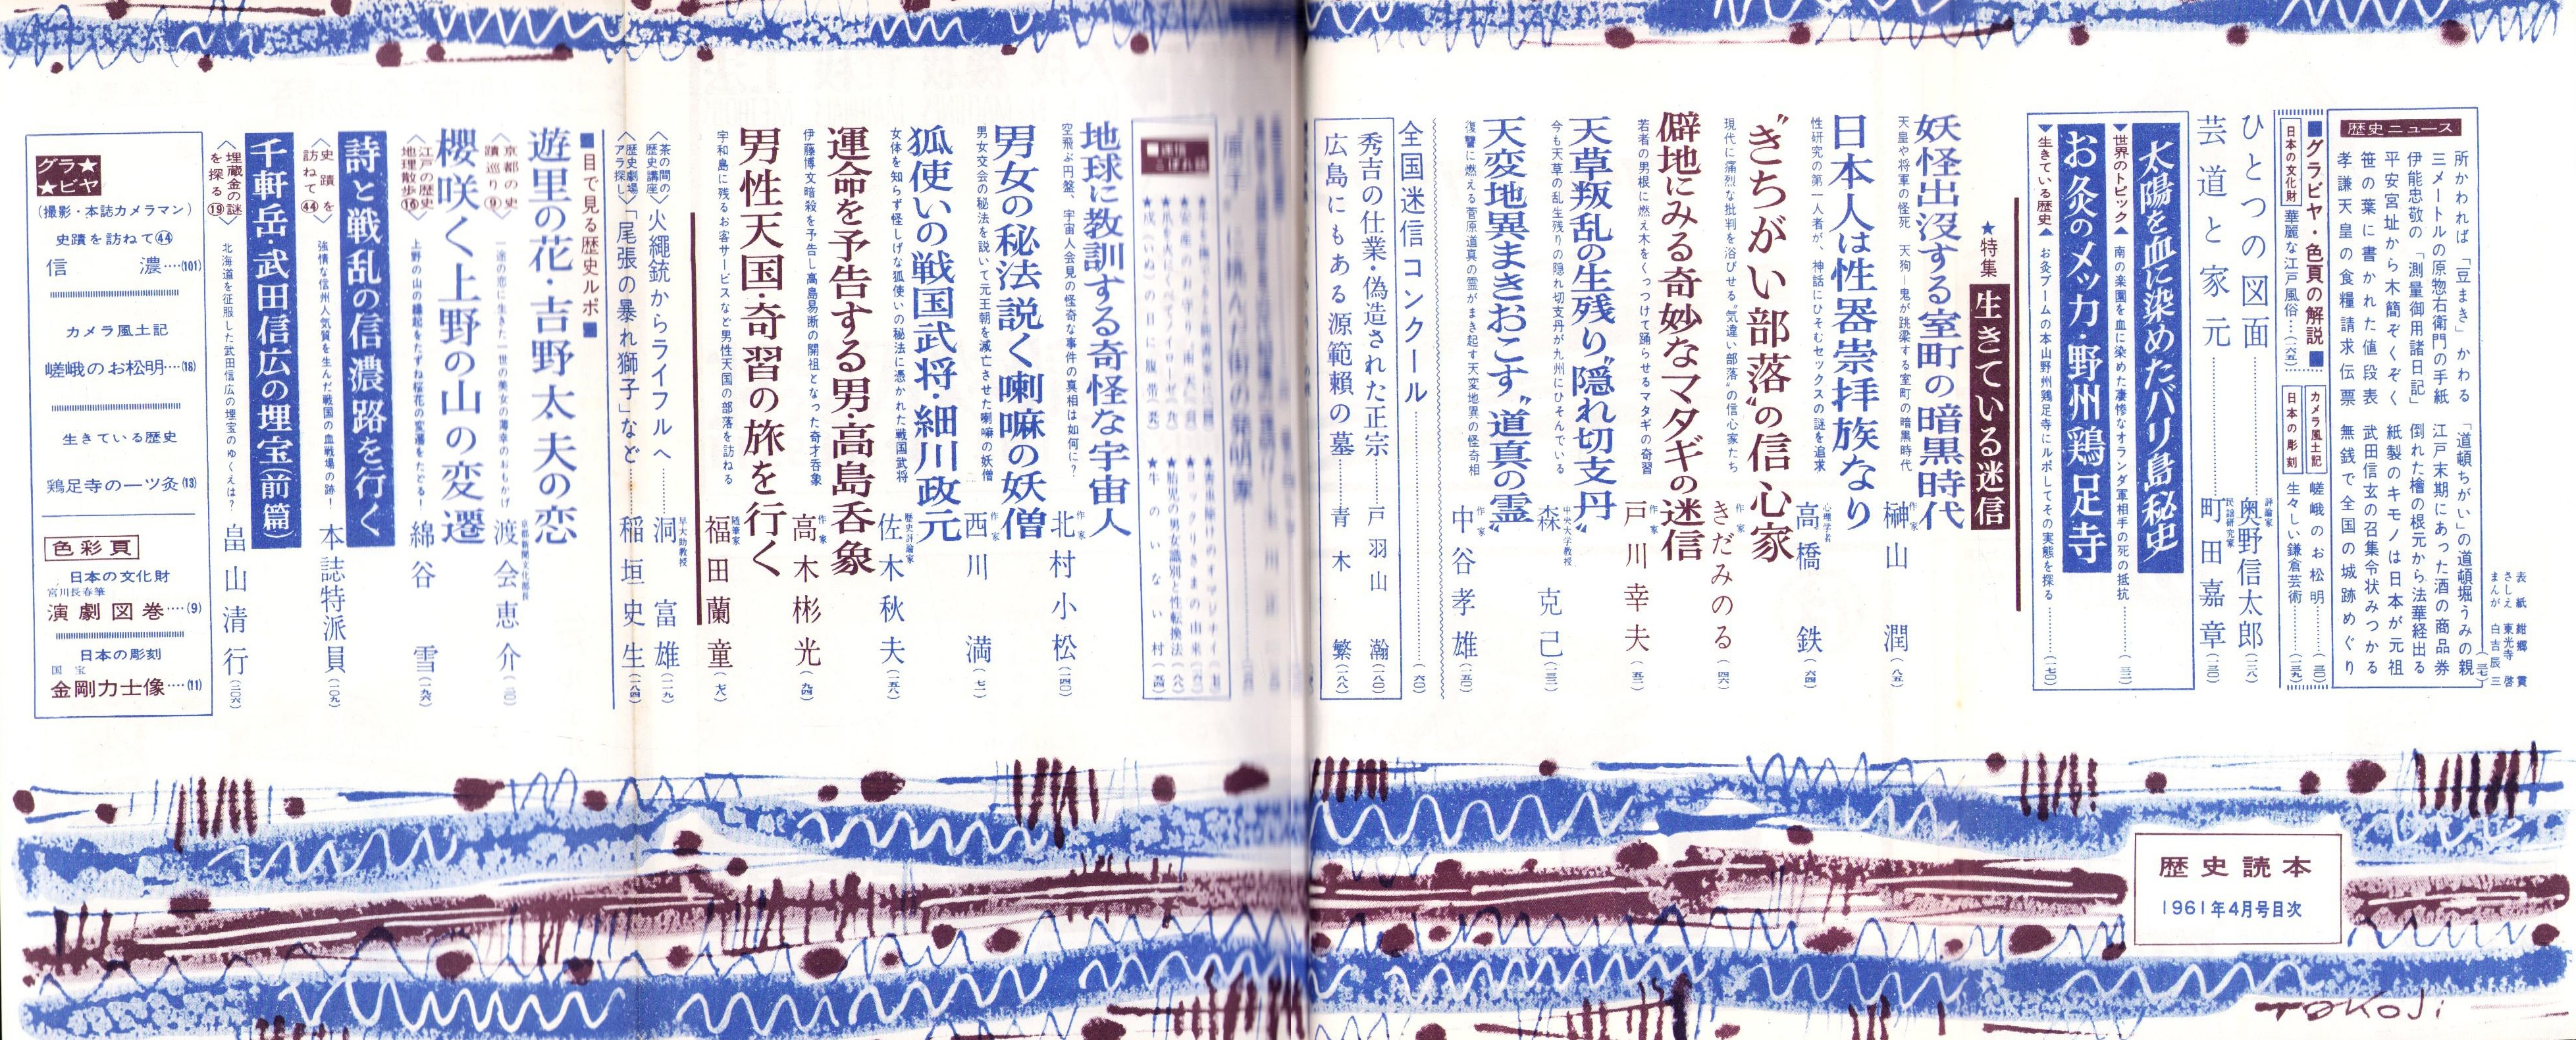 表紙 紺郷貫
さしえ 東光寺啓
まんが 白吉辰三
歴史ニュース
所かわれば「豆まき」かわる
三メートルの原惣右衛門の手紙
伊能忠敬の「測量御用諸日記」
平安宮址から木簡ぞくぞく
笹の葉に書かれた値段表
孝謙天皇の食糧請求伝票
「道頓ちがい」の道頓堀うみの親
江戸末期にあった酒の商品券
倒れた檜の根元から法華経出る
紙製のキモノは日本が元祖
武田信玄の召集令状みつかる
無銭で全国の城跡めぐり
■グラビヤ・色頁の解説■
日本の文化財 華麗な江戸風俗…
カメラ風土記 嵯峨のお松明…
日本の彫刻 生々しい鎌倉芸術…
ひとつの図面…評論家 奥野信太郎
芸道と家元…民謡研究家 町田嘉章(一三〇)
太陽を血に染めたバリ島秘史
▼世界のトピック▲ 南の楽園を血に染めた凄惨なオランダ軍相手の死の抵抗…
お灸のメッカ・野州鶏足寺
▼生きている歴史▲ お灸ブームの本山野州鶏足寺にルポしてその実態を探る…(一七〇)
★特集 生きている迷信
妖怪出没する室町の暗黒時代 作家 榊山潤(八五)
天皇や将軍の怪死 天狗−鬼が跳梁する室町の暗黒時代
日本人は性器崇拝族なり 心理学者 高橋鉄(六四)
性研究の第一人者が、神話にひそむセックスの謎を追求
〝きちがい部落〟の信心家 作家 きだみのる(四六)
現代に痛烈な批判を浴びせる〝気違い部落〟の信心家たち
僻地にみる奇妙なマタギの迷信 作家 戸川幸夫(五二)
若者の男根に燃え木をくっつけて踊らせるマタギの奇習
天草叛乱の生残り〝隠れ切支丹〟 中央大学教授 森克己(一三二)
今も天草の乱生残りの隠れ切支丹が九州にひそんでいる
天変地異まきおこす〝道真の霊〟 作家 中谷孝雄(一五〇)
復讐に燃える菅原道真の霊がまき起す天変地異の怪奇相
全国迷信コンクール…(六〇)
秀吉の仕業・偽造された正宗…戸羽山瀚(一八〇)
広島にもある源範頼の墓…青木繁(一八八)
地球に教訓する奇怪な宇宙人 作家 北村小松(一四〇)
空飛ぶ円盤、宇宙人会見の怪奇な事件の真相は如何に?
男女の秘法説く喇嘛の妖僧 作家 西川満(七一)
男女交会の秘法を説いて元王朝を滅亡させた喇嘛の妖僧
狐使いの戦国武将・細川政元 歴史評論家 佐木秋夫(一五八)
女体を知らず怪しげな狐使いの秘法に憑かれた戦国武将
運命を予告する男・高島呑象 作家 高木彬光(九四)
伊藤博文暗殺を予告し高島易断の開祖となった奇才呑象
男性天国・奇習の旅を行く 随筆家 福田蘭童(七八)
宇和島に残るお客サービスなど男性天国の部落を訪ねる
〈茶の間の歴史講座〉火縄銃からライフルへ…早大助教授 洞富雄(一一九)
〈歴史劇場アラ探し〉「尾張の暴れ獅子」など…稲垣史生(一八四)
■目で見る歴史ルポ■
遊里の花・吉野太夫の恋
〈京都の史蹟巡り⑨〉 一途の恋に生きた一世の美女の薄幸のおもかげ 京都新聞文化部長 渡会恵介
櫻咲く上野の山の変遷
〈江戸の歴史地理散歩⑯〉 上野の山の縁起をたずね桜花の変遷をたどる! 綿谷雪(一九六)
詩と戦乱の信濃路を行く
〈史蹟を訪ねて㊹〉 強情な信州人気質を生んだ戦国の血戦場の跡! 本誌特派員(二〇九)
千軒岳・武田信広の埋宝(前篇)
〈埋蔵金の謎を探る⑲〉 北海道を征服した武田信広の埋宝のゆくえは? 畠山清行(二〇六)
グラ★
★ビヤ
(撮影・本誌カメラマン)
史蹟を訪ねて㊹
信濃…(101)
カメラ風土記
嵯峨のお松明…(16)
生きている歴史
鶏足寺の一ツ灸(13)
色彩頁
日本の文化財
宮川長春筆
演劇図巻…(9)
日本の彫刻
国宝
金剛力士像…(11)
歴史読本
1961年4月号目次